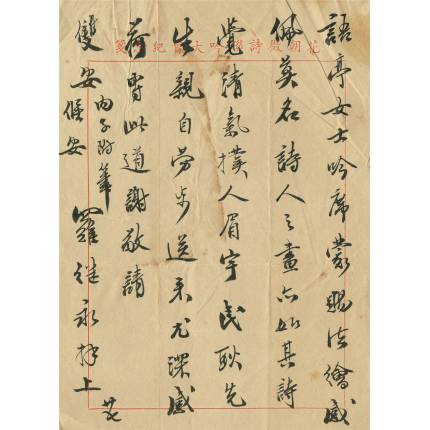 花朝啟詩
大會紀
箋
語亭女士吟席蒙賜法繪感
佩莫名詩人之畫亦如其詩
覺清氣撲人眉宇民耿先
生親自勞步送來尤深感
荷專此道謝敬請
雙安 內子附筆
候安
羅繼永拜上